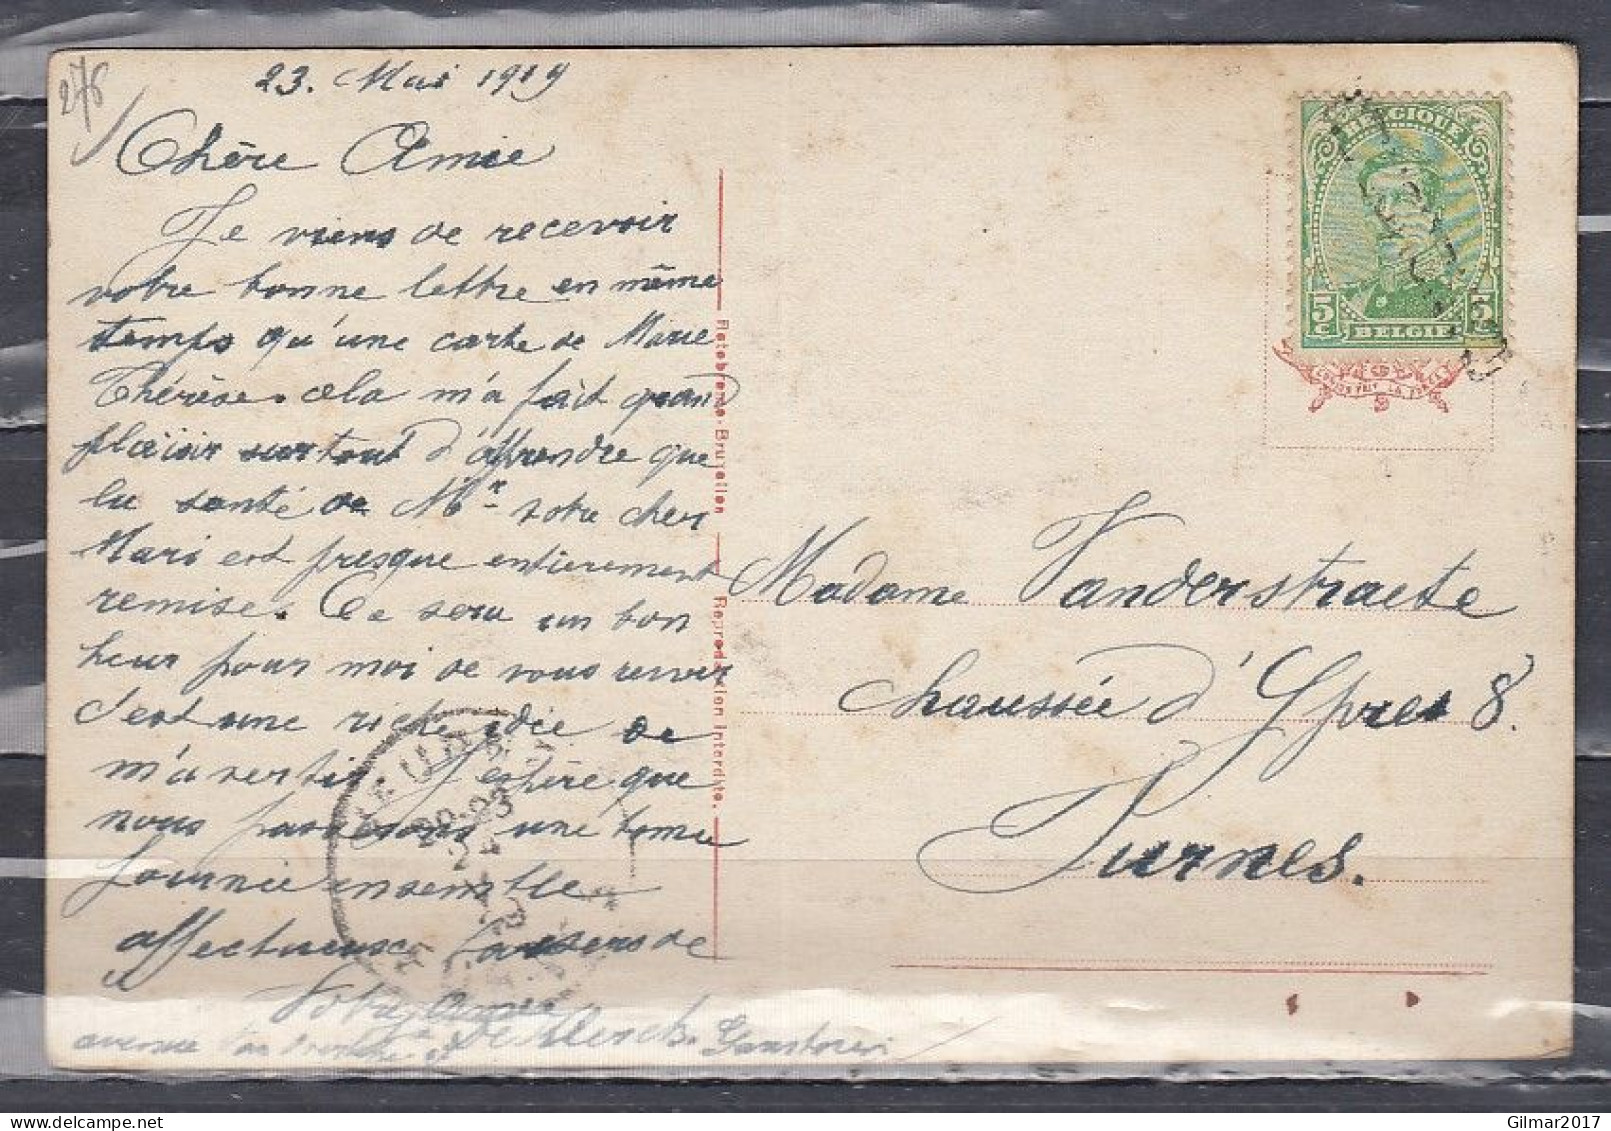 276
23. Mai 1919
Chère Amie
Je viens de recevoir
votre bonne lettre en même
temps qu'une carte de Marie
Thérèse. cela m'a fait grand
plaisir surtout d'apprendre que
la santé de Mr votre cher
Mari est presque entièrement
remise. Ce sera un bon
heur pour moi de vous revoir
c'est une riche idée de
m'avertir. J'espère que
nous passerons une bonne
journée ensemble
affectueux baisers de
Votre Amie
avenue Van
De Klerck
BELGIQUE
5 C
5 C
BELGIE
L'UNION FAIT LA FORCE
Photobrom-Bruxelles
Reproduction interdite.
Madame Vanderstraete
chaussée d'Ypres 8.
Furnes.
VEURNE
22-23
24
Gilmar2017